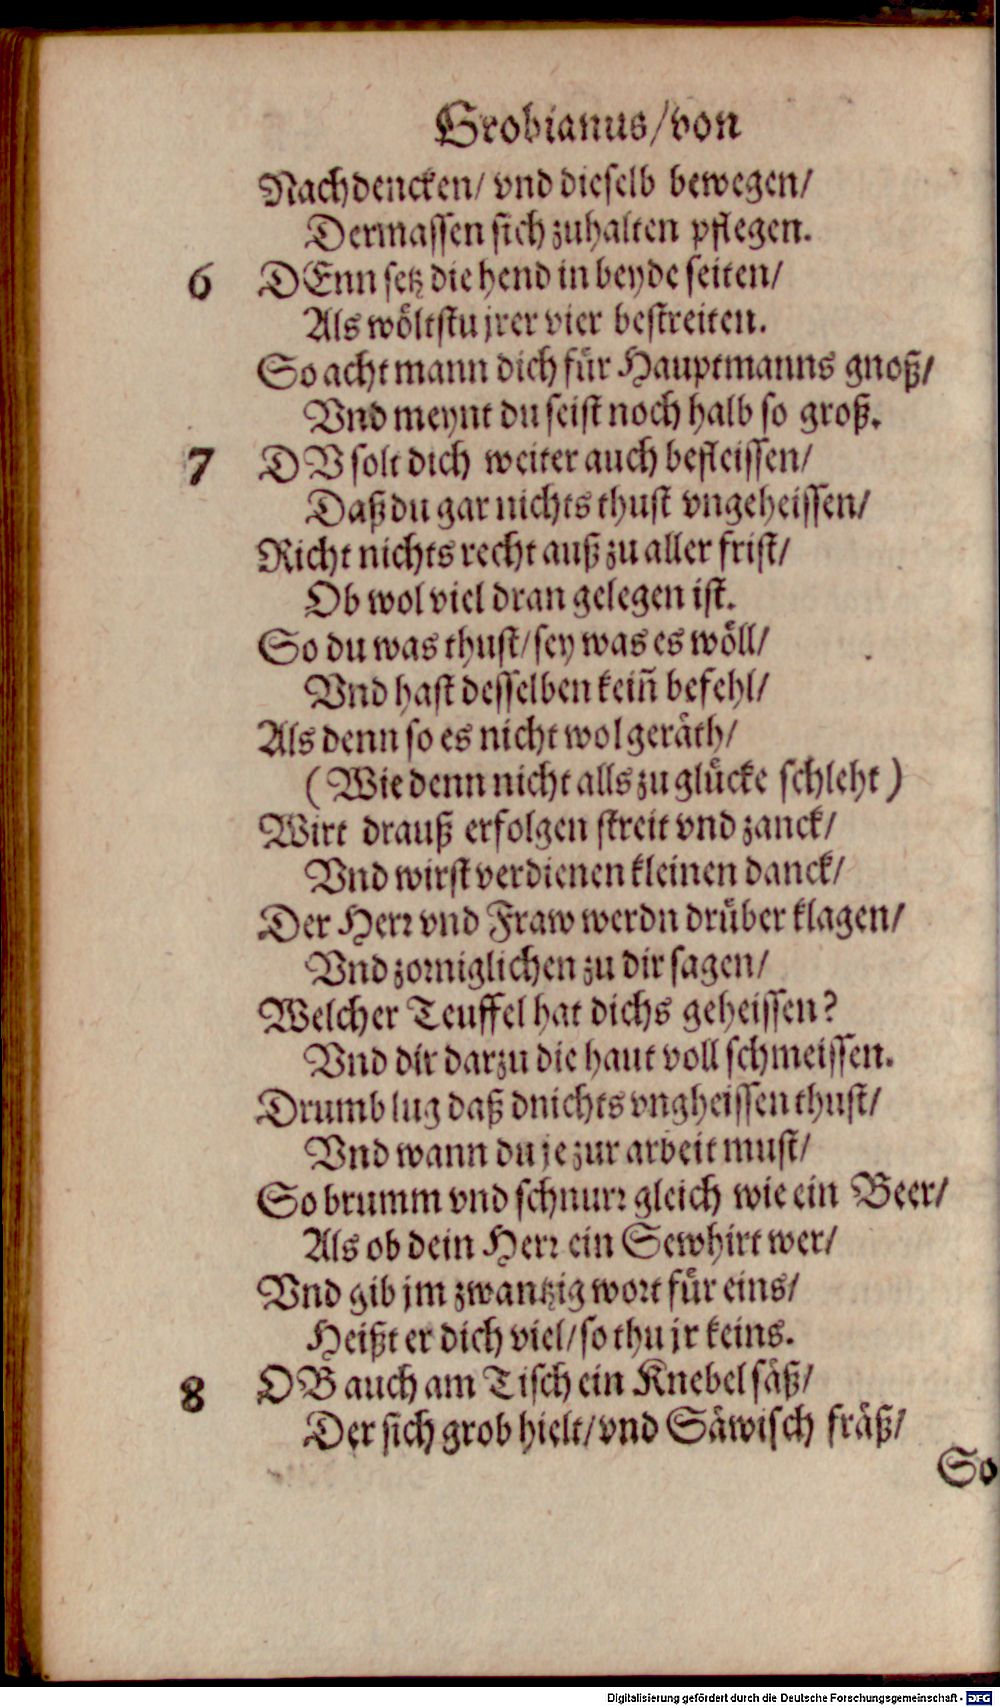 Grobianus/von
Nachdencken/ vnd dieselb bewegen/
Dermassen sich zuhalten pflegen.
6 DEnn setz die hend in beyde seiten/
Als wöltstu jrer vier bestreiten.
So acht mann dich für Hauptmanns gnoß/
Vnd meynt du seist noch halb so groß.
7 DV solt dich weiter auch befleissen/
Daß du gar nichts thust vngeheissen/
Richt nichts recht auß zu aller frist/
Ob wol viel dran gelegen ist.
So du was thust/sey was es wöll/
Vnd hast desselben keiñ befehl/
Als denn so es nicht wol geräth/
(Wie denn nicht alls zu glücke schleht)
Wirt drauß erfolgen streit vnd zanck/
Vnd wirst verdienen kleinen danck/
Der Herr vnd Fraw werdn drüber klagen/
Vnd zorniglichen zu dir sagen/
Welcher Teuffel hat dichs geheissen?
Vnd dir darzu die haut voll schmeissen.
Drumb lug daß dnichts vngheissen thust/
Vnd wann du je zur arbeit must/
So brumm vnd schnurr gleich wie ein Beer/
Als ob dein Herr ein Sewhirt wer/
Vnd gib jm zwantzig wort für eins/
Heißt er dich viel/so thu jr keins.
8 OB auch am Tisch ein Knebel säß/
Der sich grob hielt/vnd Säwisch fräß/
So
Digitalisierung gefördert durch die Deutsche Forschungsgemeinschaft - DFG